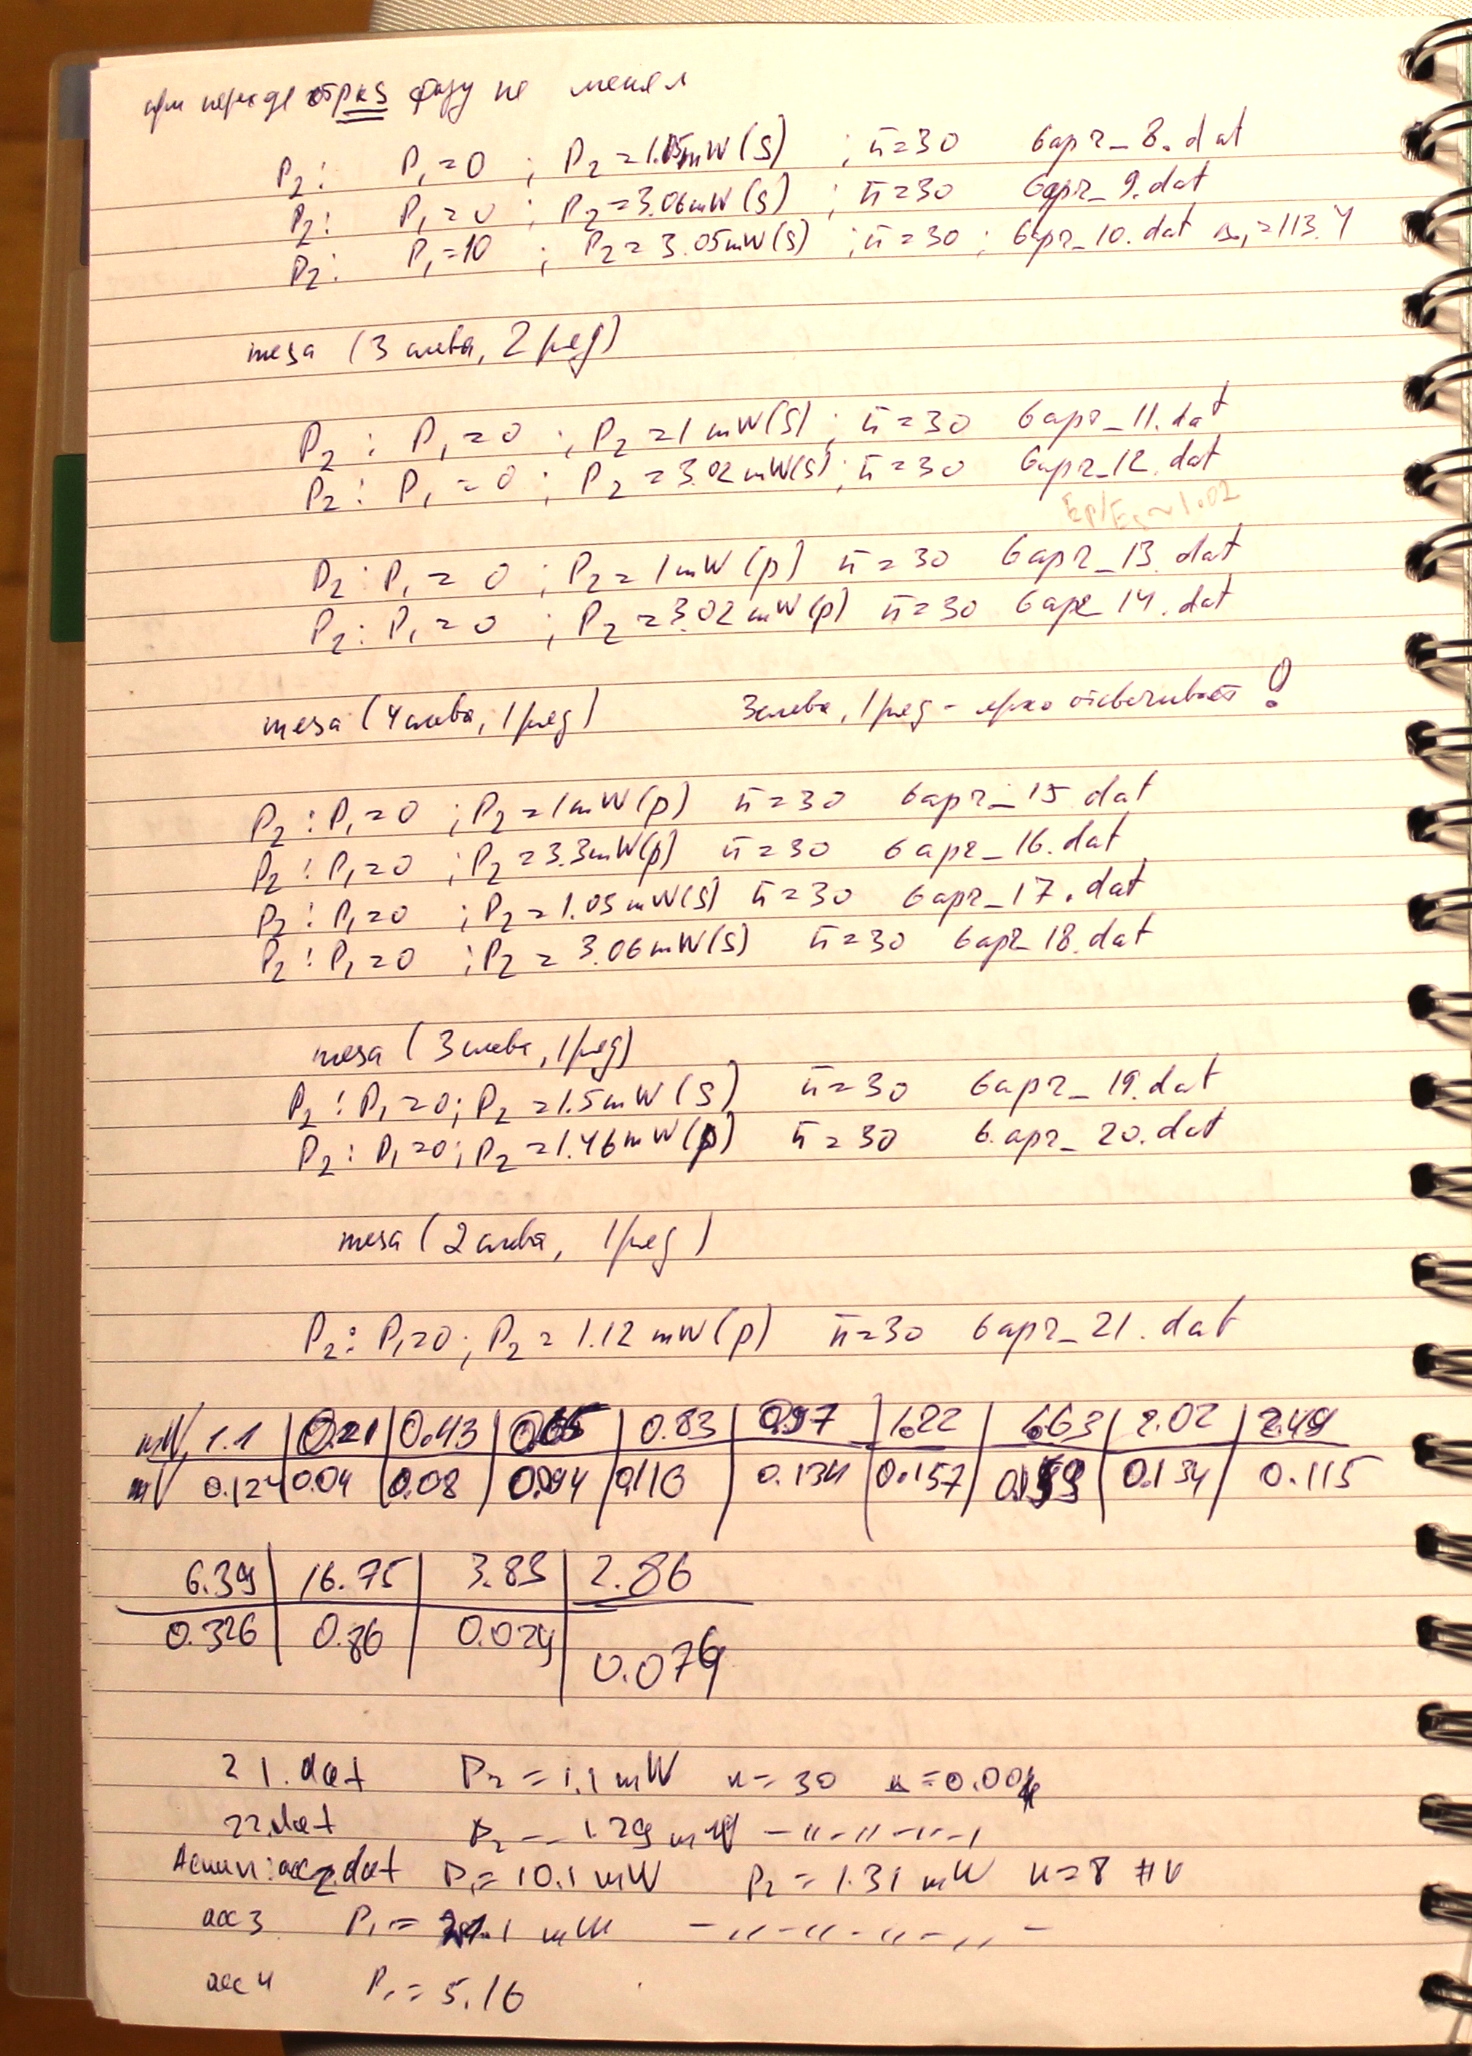 при переходе от p к s фазу не менял
P₂: P₁=0 ; P₂=1.05mW(s) ; n̄=30 6apr_8.dat
P₂: P₁=0 ; P₂=3.06mW(s) ; n̄=30 6apr_9.dat
P₂: P₁=10 ; P₂=3.05mW(s) ; n̄=30 ; 6apr_10.dat =113.4
meза (3 слева, 2 ряд)
P₂: P₁=0 ; P₂=1mW(s) ; n̄=30 6apr_11.dat
P₂: P₁=0 ; P₂=3.02mW(s) ; n̄=30 6apr_12.dat
Ep/Es~1.02
P₂: P₁=0 ; P₂=1mW(p) n̄=30 6apr_13.dat
P₂: P₁=0 ; P₂=3.02mW(p) n̄=30 6apr_14.dat
меза (4 слева, 1 ряд) 3 слева, 1 ряд - ярко отсвечивает!
P₂: P₁=0 ; P₂=1mW(p) n̄=30 6apr_15.dat
P₂: P₁=0 ; P₂=3.3mW(p) n̄=30 6apr_16.dat
P₂: P₁=0 ; P₂=1.05mW(s) n̄=30 6apr_17.dat
P₂: P₁=0 ; P₂=3.06mW(s) n̄=30 6apr_18.dat
меза (3 слева, 1 ряд)
P₂: P₁=0; P₂=1.5mW(s) n̄=30 6apr_19.dat
P₂: P₁=0; P₂=1.46mW(p) n̄=30 6.apr_20.dat
меза (2 слева, 1 ряд)
P₂: P₁=0; P₂=1.12mW(p) n̄=30 6apr_21.dat
mW 1.1 0.21 0.43 0.65 0.83 0.97 1.22 1.63 2.02 2.49
mV 0.124 0.04 0.08 0.094 0.116 0.134 0.157 0.134 0.115
6.39 16.75 3.83 2.86
0.326 0.86 0.029 0.079
21.dat P₂=1.1mW n=30
22.dat P₂=1.29mW -"-"-"-
acc2.dat P₁=10.1mW P₂=1.31mW n=8
acc3 P₁= mW -"-"-"-"-
acc4 P₁=5.16